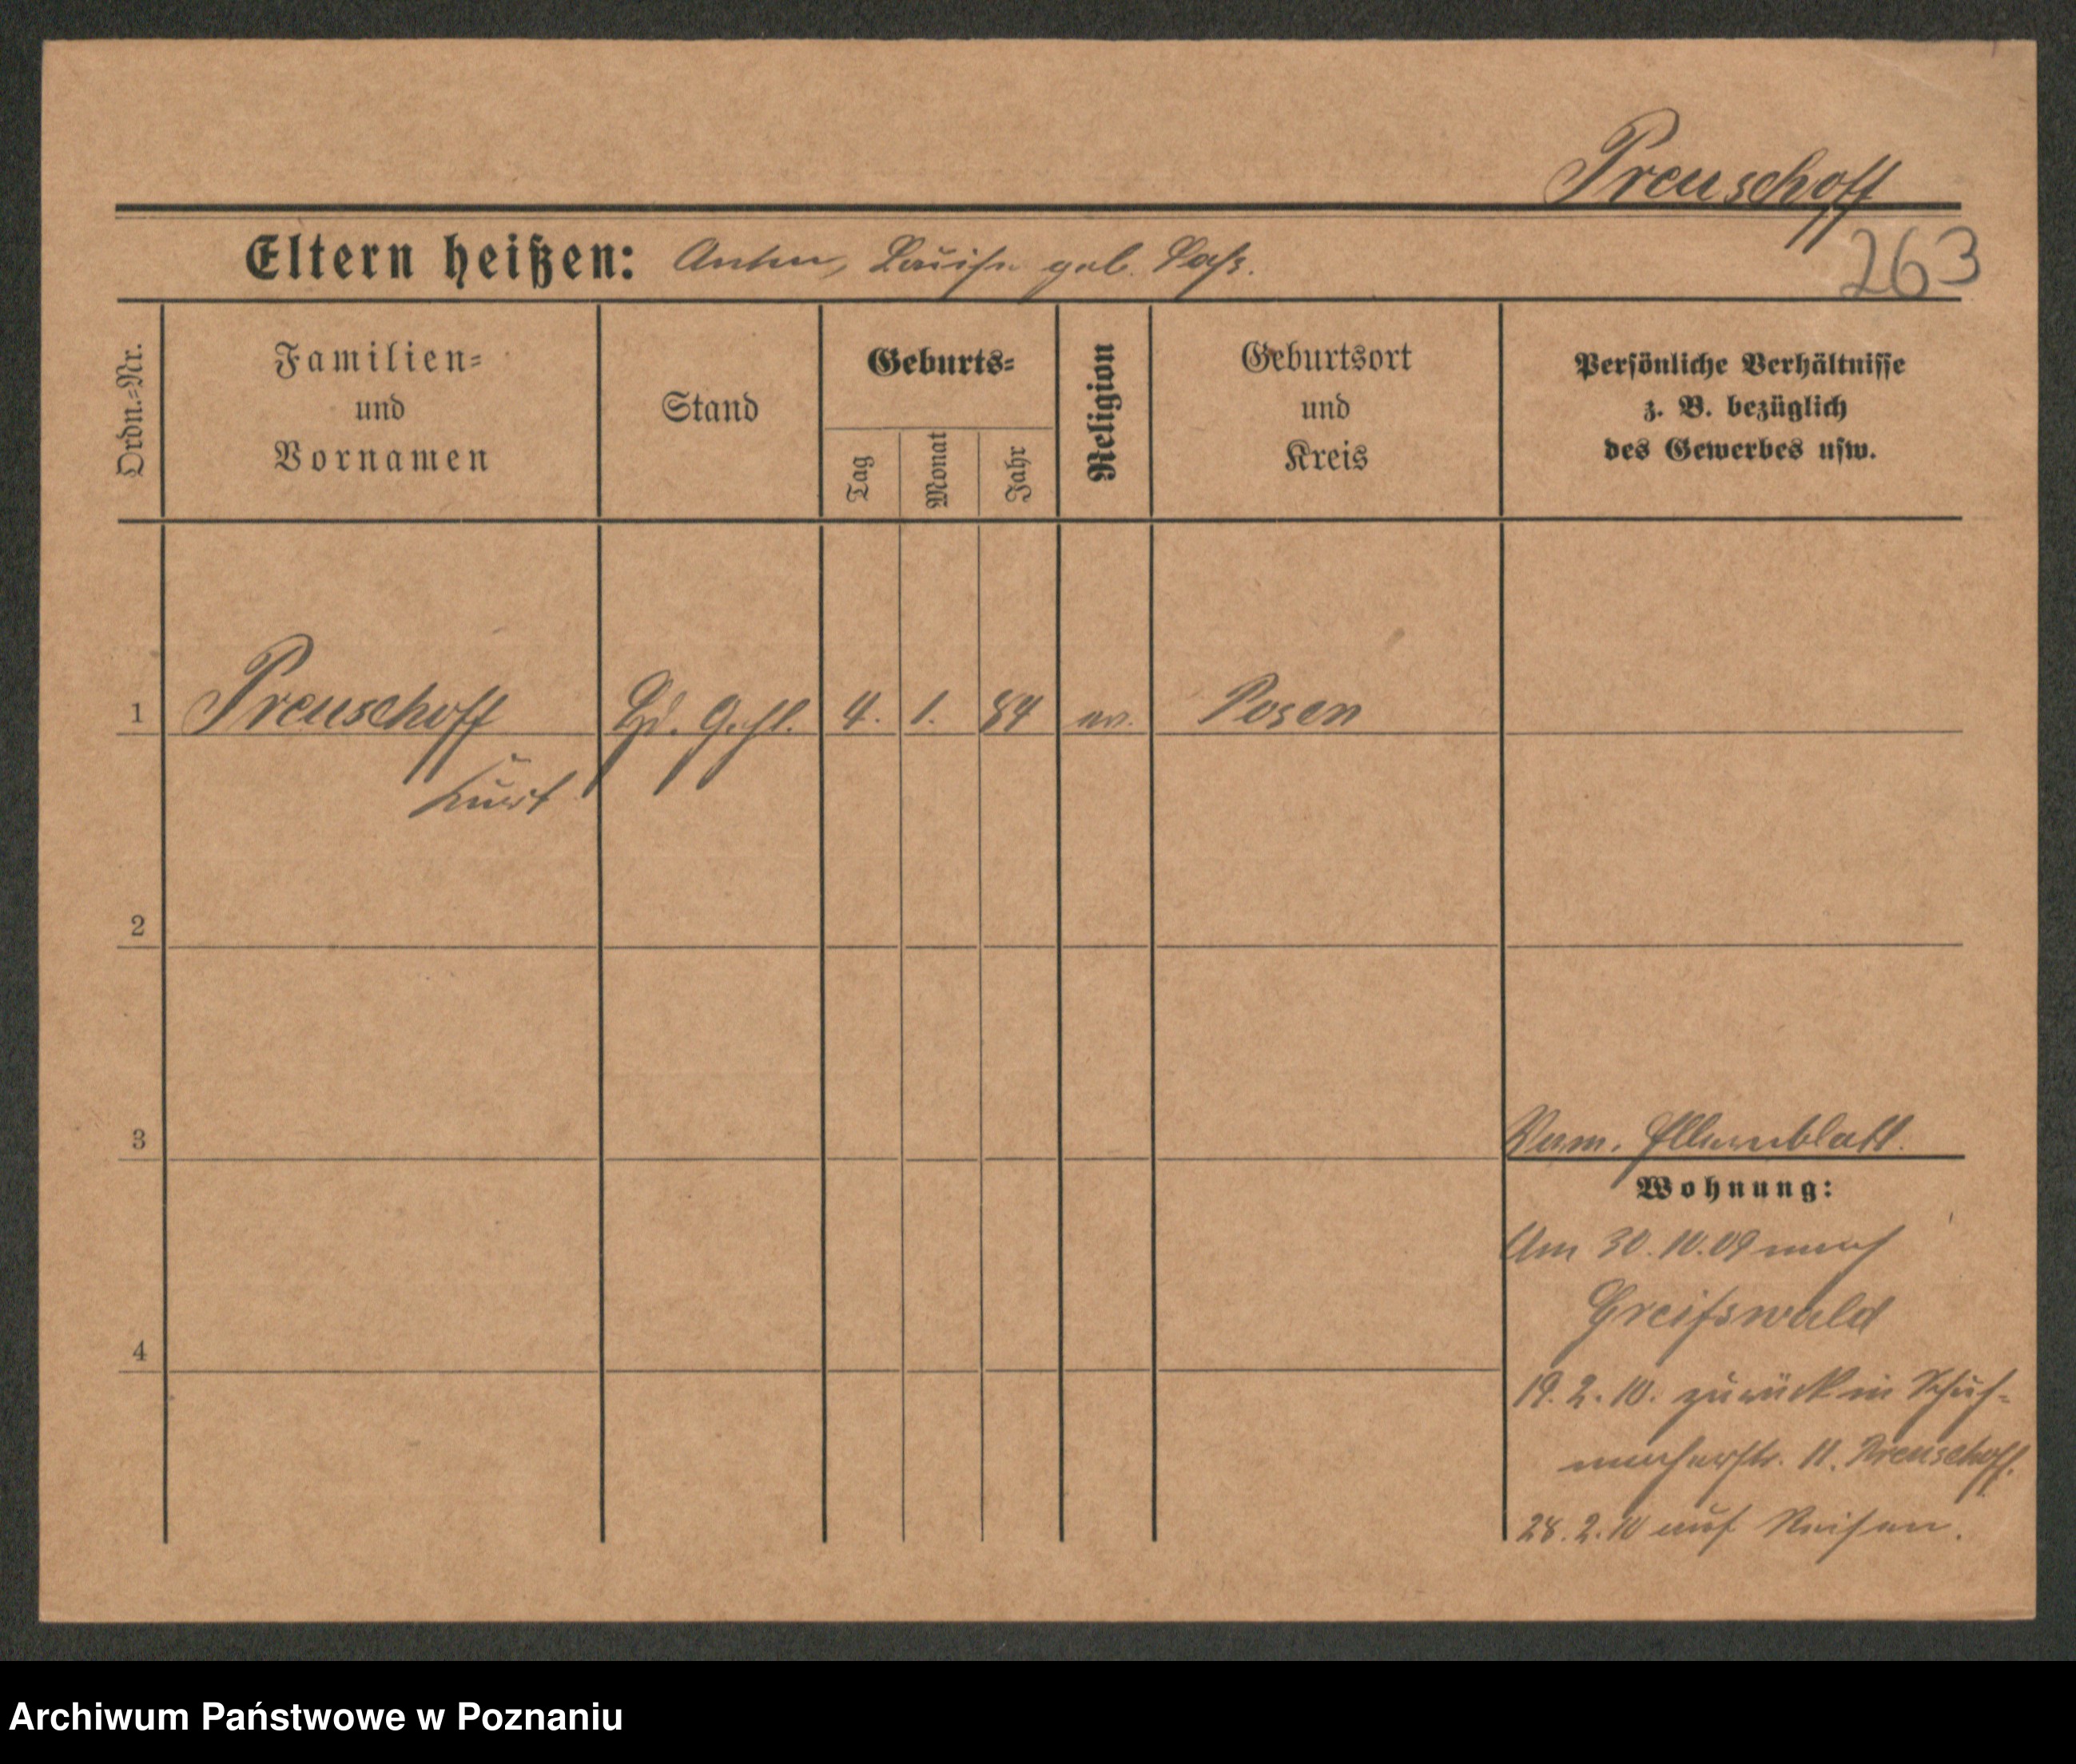 Preuschoff
263
Eltern heißen: Anton, Louise geb. Pass.
Ordn.=Nr.
Familien=
und
Vornamen
Stand
Geburts=
Tag
Monat
Jahr
Religion
Geburtsort
und
Kreis
Persönliche Verhältnisse
z. B. bezüglich
des Gewerbes usw.
1 Preuschoff 4. 1. 84 ev. Posen
Kurt
2
3
Verm. Elternblatt.
Wohnung:
Am 30.10.09 nach
Greifswald
4
19.2.10. zurück in Schuh-
macherstr. 11. Preuschoff.
28.2.10 auf Reisen.
Archiwum Państwowe w Poznaniu